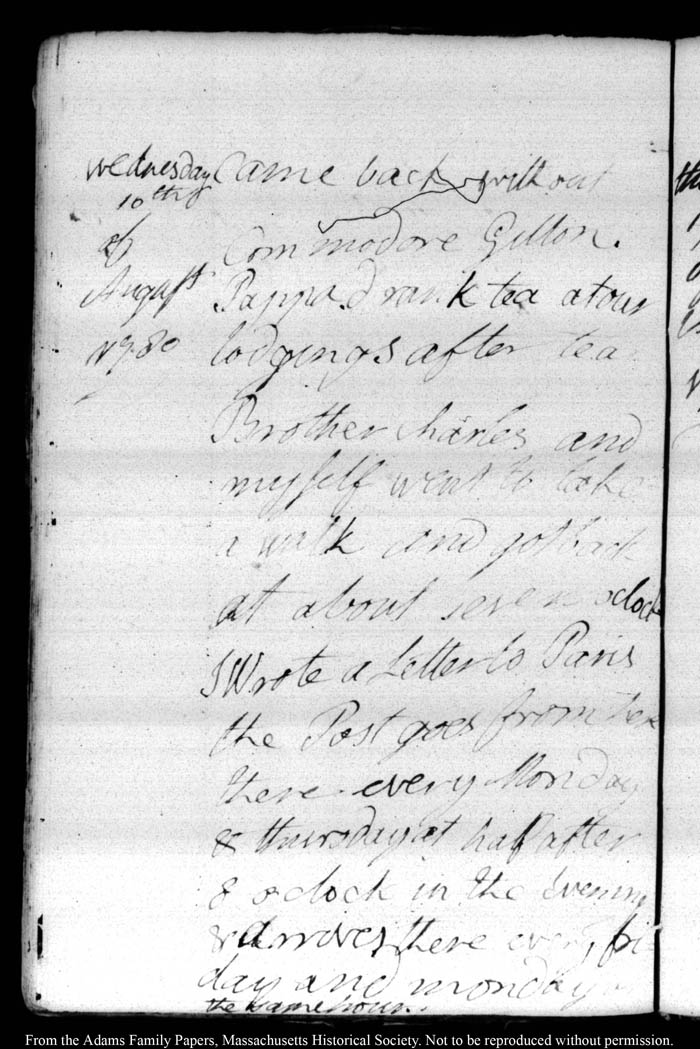 Wednesday
10th
of
August
1780
Came back without
Commodore Gillon.
Pappa Drank tea at our
lodgings after tea
Brother Charles and
myself went to take
a walk and got back
at about seven oclock
I Wrote a Letter to Paris
the Post goes from here
there every Monday
& thursday at half after
8 o clock in the Evening
& arrives there every fri
day and monday
the same hour.
From the Adams Family Papers, Massachusetts Historical Society. Not to be reproduced without permission.